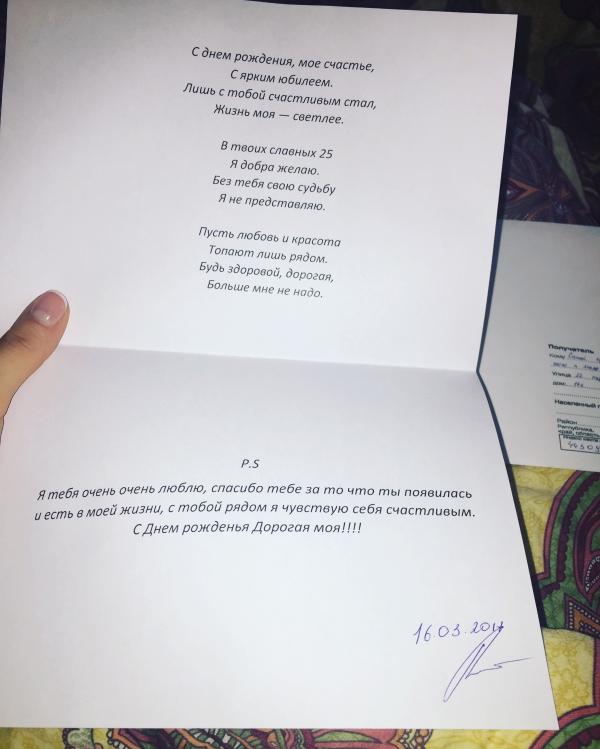 С днем рождения, мое счастье,
С ярким юбилеем.
Лишь с тобой счастливым стал,
Жизнь моя — светлее.
В твоих славных 25
Я добра желаю.
Без тебя свою судьбу
Я не представляю.
Пусть любовь и красота
Топают лишь рядом.
Будь здоровой, дорогая,
Больше мне не надо.
P.S
Я тебя очень очень люблю, спасибо тебе за то что ты появилась
и есть в моей жизни, с тобой рядом я чувствую себя счастливым.
С Днем рожденья Дорогая моя!!!!
16.03.
Получатель
Кому
Улица 22
дом:
Населенный
Район
Республика,
край, область